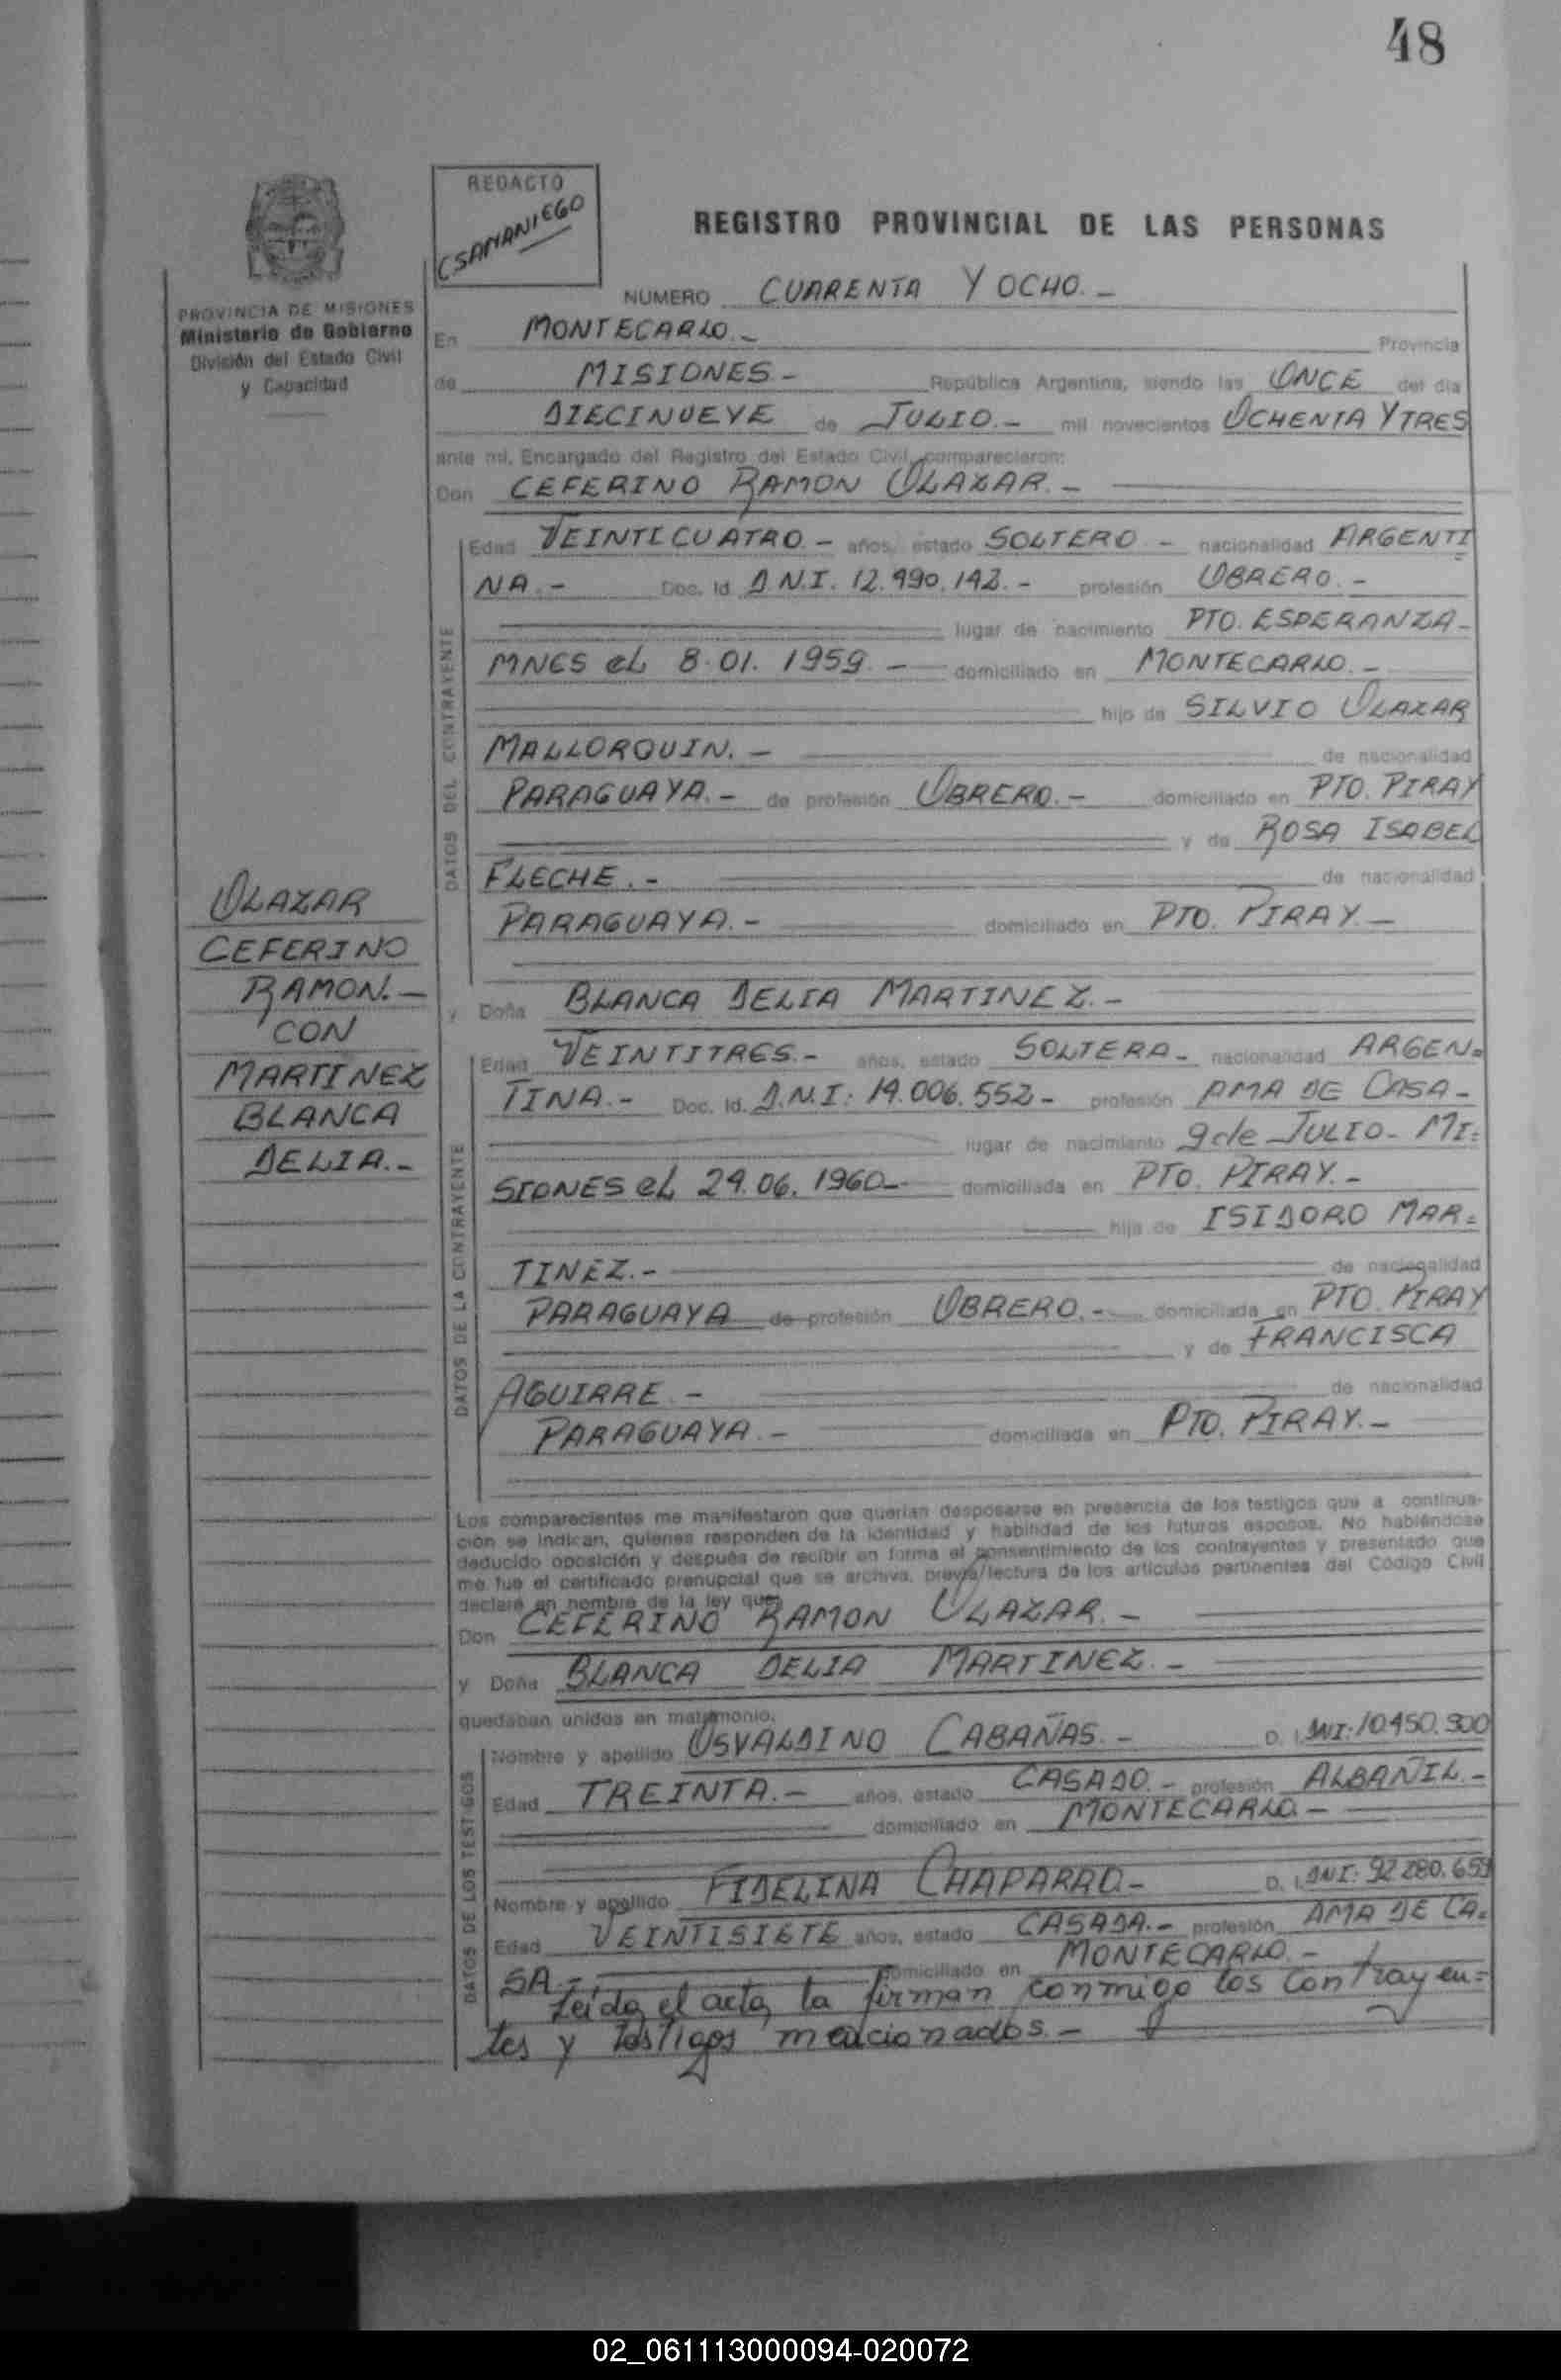 48
REDACTO
CSAMANIEGO
REGISTRO PROVINCIAL DE LAS PERSONAS
PROVINCIA DE MISIONES
Ministerio de Gobierno
División del Estado Civil
y Capacidad
NUMERO CUARENTA Y OCHO.-
En MONTECARLO.- Provincia
de MISIONES- República Argentina, siendo las ONCE del día
DIECINUEVE de JULIO.- mil novecientos OCHENTA Y TRES
ante mi, Encargado del Registro del Estado Civil, comparecieron:
Don CEFERINO RAMON OLAZAR.-
DATOS DEL CONTRAYENTE
Edad VEINTICUATRO.- años, estado SOLTERO- nacionalidad ARGENTI
NA.- Doc. Id D.N.I. 12.990.142.- profesión OBRERO.-
lugar de nacimiento PTO. ESPERANZA-
MNES el 8.01.1959.- domiciliado en MONTECARLO.-
hijo de SILVIO OLAZAR
MALLORQUIN.- de nacionalidad
PARAGUAYA.- de profesión OBRERO.- domiciliado en PTO. PIRAY
y de ROSA ISABEL
FLECHE.- de nacionalidad
PARAGUAYA.- domiciliado en PTO. PIRAY.-
OLAZAR
CEFERINO
RAMON.-
CON
MARTINEZ
BLANCA
DELIA.-
y Doña BLANCA DELIA MARTINEZ.-
DATOS DE LA CONTRAYENTE
Edad VEINTITRES.- años, estado SOLTERA- nacionalidad ARGEN=
TINA.- Doc. Id. D.N.I: 14.006.552- profesión AMA DE CASA-
lugar de nacimiento 9 de JULIO- MI=
SIONES el 29.06.1960- domiciliada en PTO. PIRAY.-
hija de ISIDORO MAR=
TINEZ.- de nacionalidad
PARAGUAYA de profesión OBRERO.- domiciliada en PTO. PIRAY
y de FRANCISCA
AGUIRRE.- de nacionalidad
PARAGUAYA.- domiciliada en PTO. PIRAY.-
Los comparecientes me manifestaron que querían desposarse en presencia de los testigos que a continua-
ción se indican, quienes responden de la identidad y habilidad de los futuros esposos. No habiéndose
deducido oposición y después de recibir en forma el consentimiento de los contrayentes y presentado que
me fue el certificado prenupcial que se archiva, previa lectura de los artículos pertinentes del Código Civil
declaré en nombre de la ley que
Don CEFERINO RAMON OLAZAR.-
y Doña BLANCA DELIA MARTINEZ.-
quedaban unidos en matrimonio.
DATOS DE LOS TESTIGOS
Nombre y apellido OSVALDINO CABAÑAS.- D. I. DNI: 10.450.300
Edad TREINTA.- años, estado CASADO.- profesión ALBAÑIL.-
domiciliado en MONTECARLO.-
Nombre y apellido FIDELINA CHAPARRO.- D. I. DNI: 92.280.659
Edad VEINTISIETE años, estado CASADA.- profesión AMA DE CA=
SA.- domiciliado en MONTECARLO.-
Leída el acta, la firman conmigo los contrayen=
tes y testigos mencionados.-
02_061113000094-020072